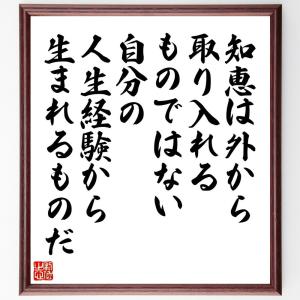 知恵は外から
取り入れる
ものではない
自分の
人生経験から
生まれるものだ